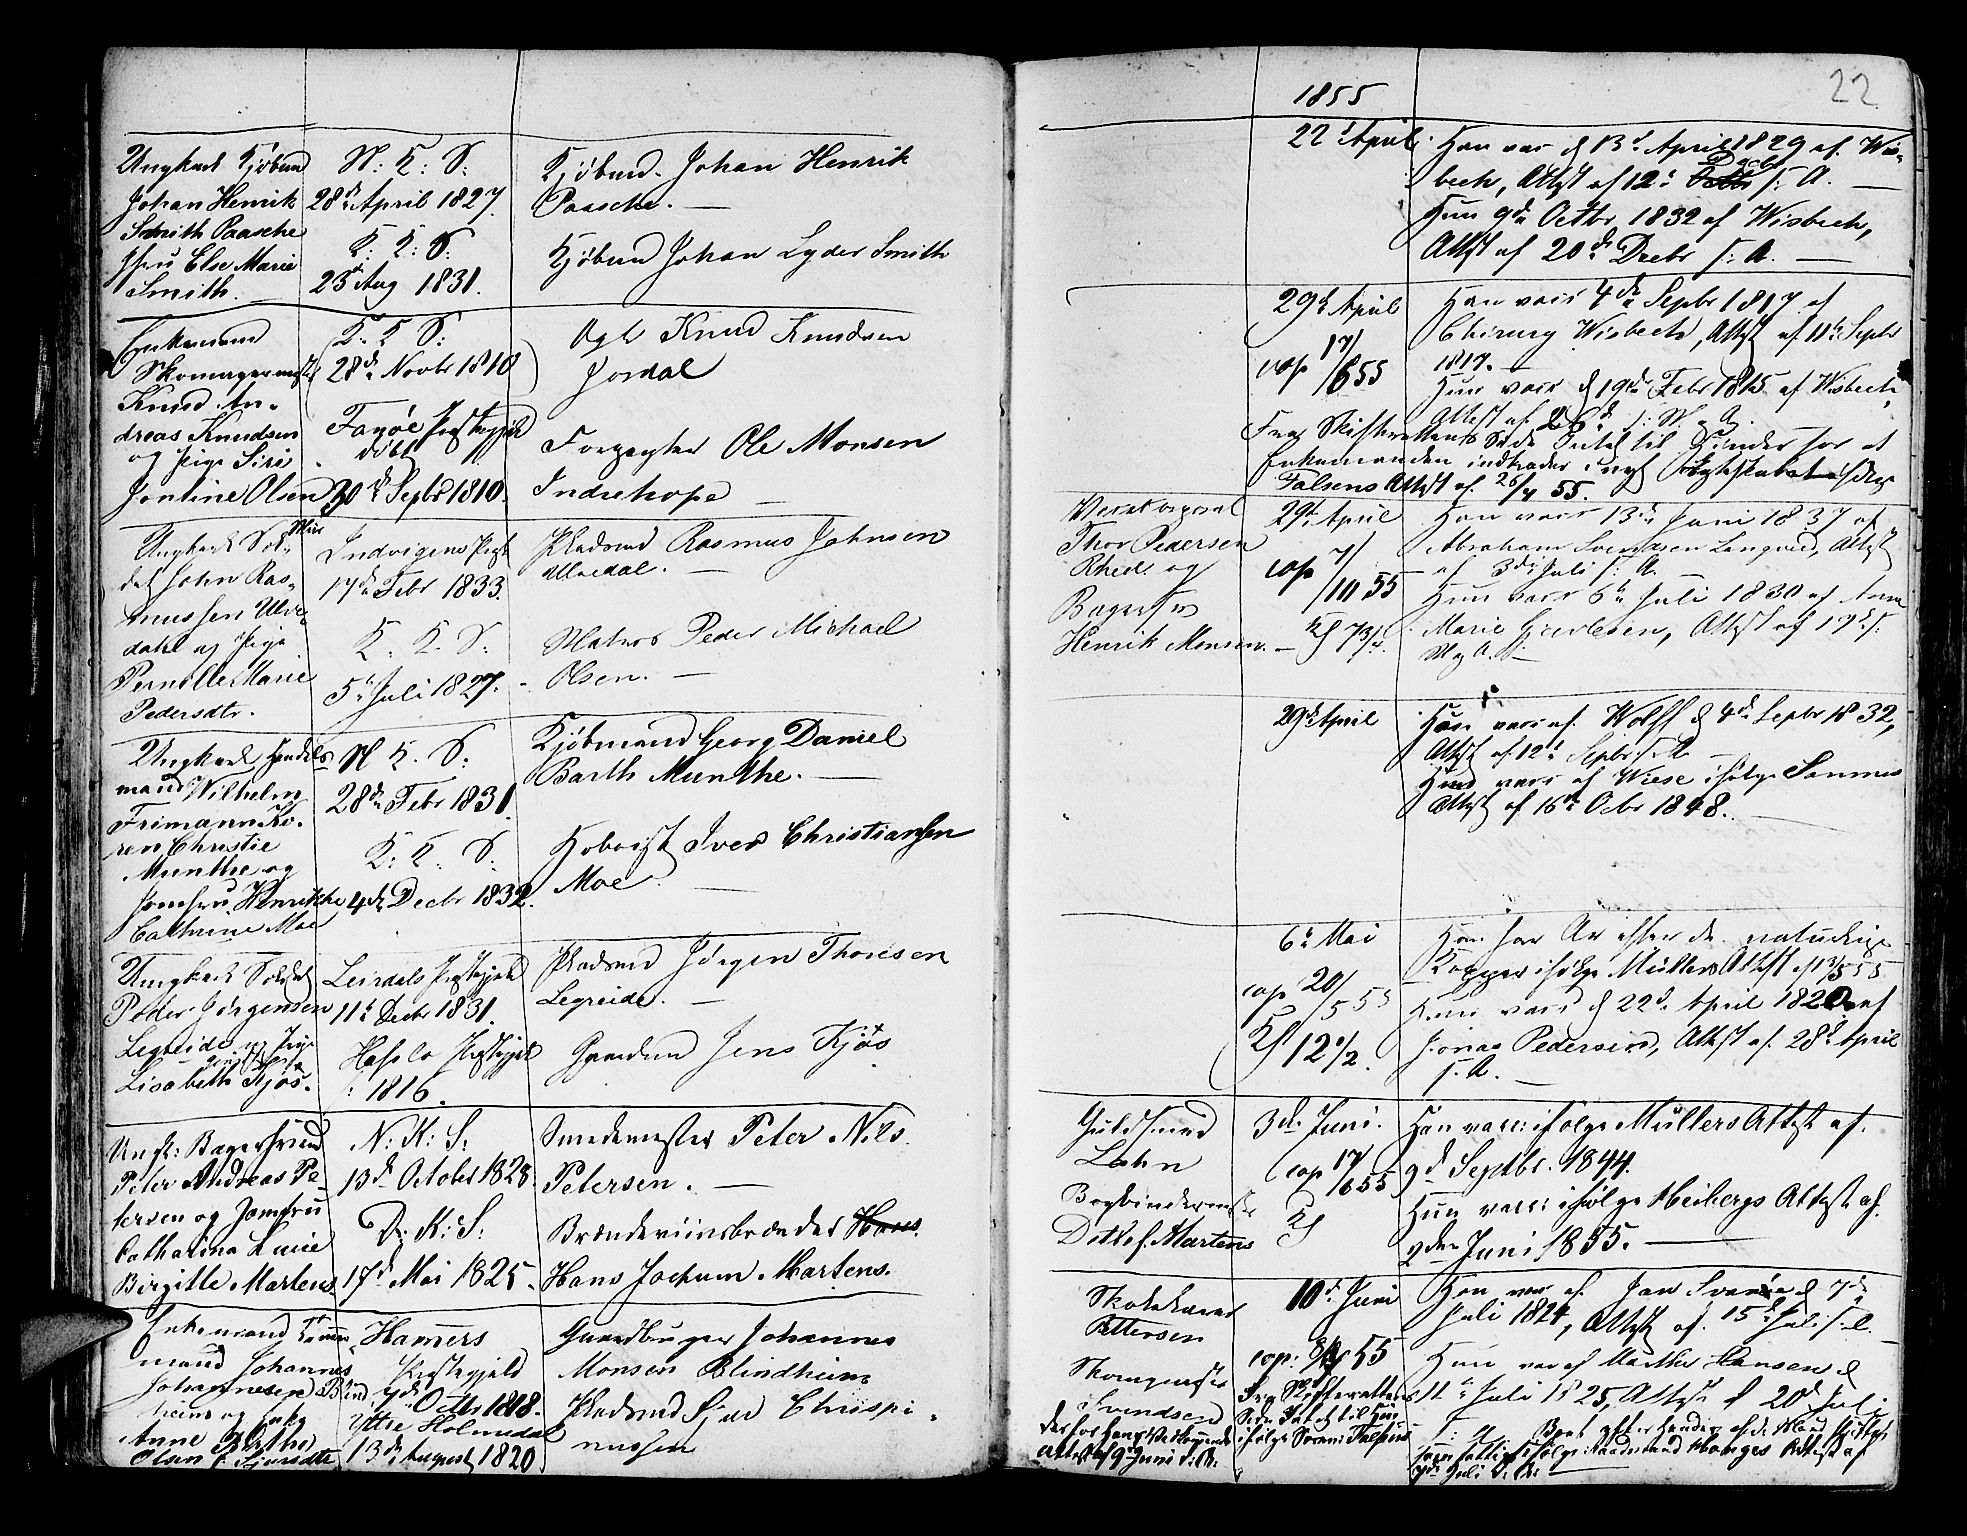 Ungkarl Kjøbmd
Johan Henrik
Smith Paasche
Jfru Else Marie
Smith.
N: K: S:
28de April 1827.
K: K: S:
23de Aug 1831.
Kjøbmd. Johan Henrik
Paasche. —
Kjøbmd Johan Lyder Smith
Enkemand
Skomagermester
Knud An-
dreas Knudsen
og Pige Siri
Jentine Olsen
K. K S:
28de Novbr 1810
Fanøe Præstegjeld
døbt
30de Septbr 1810.
Knud Knudsen
Jordal
Forpagter Ole Monsen
Indrehope —
Ungkarl Sol-
dat John Ras-
mussen Ulve-
dahl og Pige
Pernille Marie
Pedersdtr.
Indvigens Præst
17de Febr 1833.
K. K. S:
5te Juli 1827.
Pladsmd Rasmus Johnsen
Ulvedal. —
Matros Peder Michael
Olsen. —
Ungkarl Handels-
mand Wilhelm
Frimann Ko-
ren Christie
Munthe og
Jomfru Henrikke
Cathrine Moe
N K. S:
28de Febr 1831.
K: K. S:
4de Decbr 1832.
Kjøbmand Georg Daniel
Barth Munthe. —
Hoboist Iver Christiansen
Moe. —
Ungkarl Soldat
Peder Jørgensen
Legreide og Pige
Lisabeth Kjøs.
Leirdals Præstegjeld
11te Decbr 1831.
Hafslo Præstegjeld
1816.
Pladsmd Jørgen Thoresen
Legreide. —
Gaardmd Jens Kjøs
Ungk: Bagersvend
Peter Andreas Pe-
tersen og Jomfru
Catharina Lucie
Birgitte Martens
N: K: S:
13de October 1828.
D: K: S:
17de Mai 1825.
Smedemester Peter Nils
Petersen. —
Brændeviinsbrænder Hans
Hans Jochum Martens.
Enkemand Tømmer-
mand Johannes
Johannesen Blind-
heim og Enke
Anne Birthe
Olsen f. Sjursdtr
Hammers
Præstegjeld
Octbr 1818.
Ytre Holmedal
13de August 1820.
Gaardbruger Johannes
Monsen Blindheim
Pladsmd Sjur Chrispi-
nussen
22
1855
22de April
Han var d 13de April 1829 af Wis-
bech, Attest af 12te Decbr s: A. —
Hun 9de Octbr 1832 af Wisbech,
Attest af 20de Decbr s: A. —
29de April
cop 17/6 55
Han vacc 4de Septbr 1817 af
Chirurg Wisbech, Attest af 11te Septbr
1817. —
Hun vacc d 19de Febr 1815 af Wisbech,
Attest af
Fra Skifterettens Side Intet til Hinder for at
Enkemanden indtræder i nyt Ægteskab ifølge
Falsens Attest af 26/4 55.
Thor Pedersen
Rhed. og
Bagersv
Henrik Monsen.
29de April
cop 7/10 55
Han vacc 13de Juni 1837 af
Abraham Svendsen Langved, Attest
af 3die Juli s: A.
Hun vacc 6te Juli 1830 af Anna
Marie Gjertsen, Attest af 19de s:
M og A. —
29de April
Han vacc af. Wolff d 4de Septbr 1832,
Attest af 12te Septbr s. A.
Hun vacc af Wiese ifølge Sammes
Attest af 16de Octbr 1848. —
6te Mai
cop 20/5 55
Han har Ar efter de naturlige
Kopper ifølge Müllers Attest af 13/5 55
Hun vacc d 22de April 1820 af
Jonas Pedersen, Attest af 28de April
s. A. —
Guldsmed
Lohn
Bogbindermester
Detlef. Martens
3die Juni.
cop 17/6 55
Han vacc: ifølge Müllers Attest af
9de Septbr. 1844.
Hun vacc: ifølge Heibergs Attest af
2den Juni 1855. —
Skolelærer
Pettersen
Skomager
Svendsen
10de Juni
cop: 55
Fra Skifterettens
Side Intet til Hin-
der for hans Vedkommende
ifølge Soren:
Attest af 9de Juni s: A:
Han vac af. Jan d 7de
Juli 1824, Attest af. 15de Juli s. A.
Hun vac af Marthe Hansen d
11te Juli 1825, Attest af 20de Juli
s: A